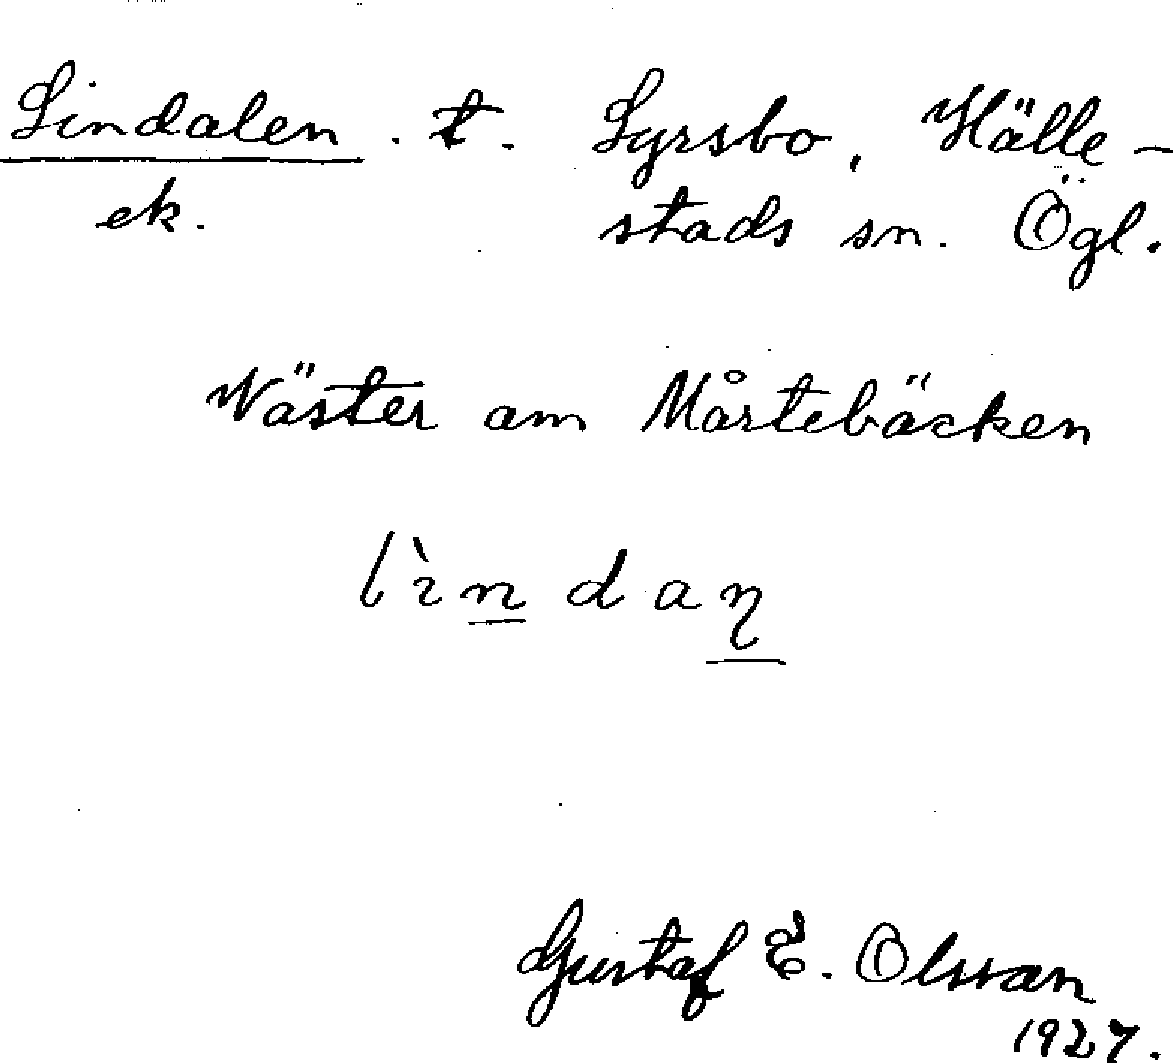 Lindalen. t. Lyrsbo, Hälle-
ek. stads sn. Ögl.
Väster om Mårtebäcken
lìndaη
Gustaf E. Olsson
1927.